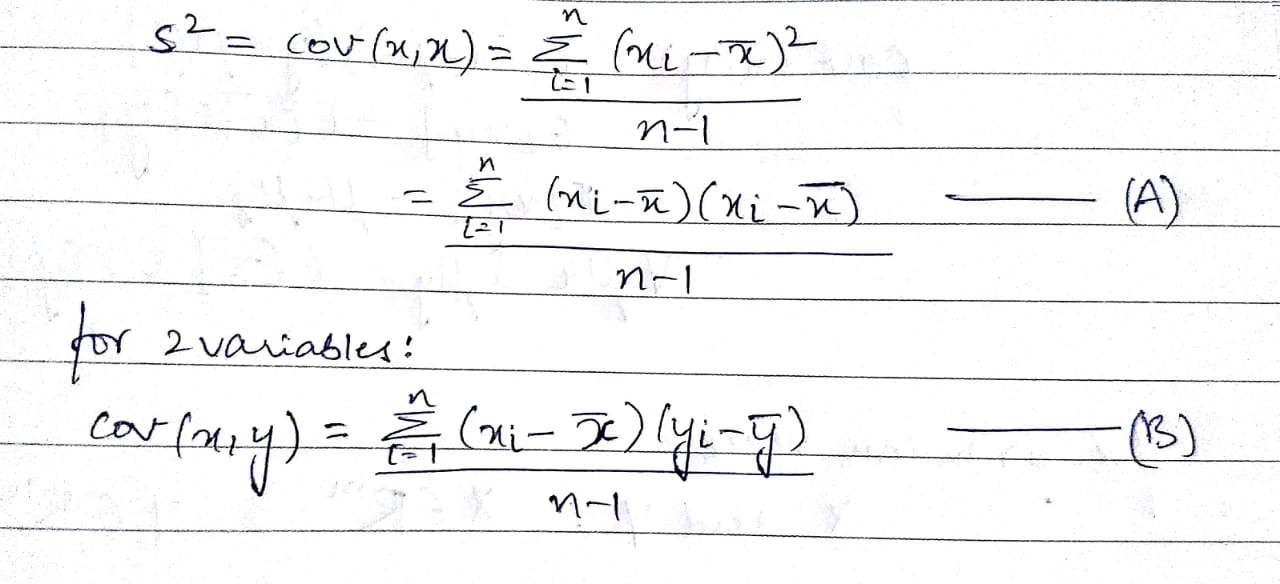 s² = cov(x,x) = Σ_{i=1}^{n} (xi – x̄)²
n–1
= Σ_{i=1}^{n} (xi – x̄)(xi – x̄) —— (A)
n–1
for 2 variables:
cov(x,y) = Σ_{i=1}^{n} (xi – x̄)(yi – ȳ) —— (B)
n–1